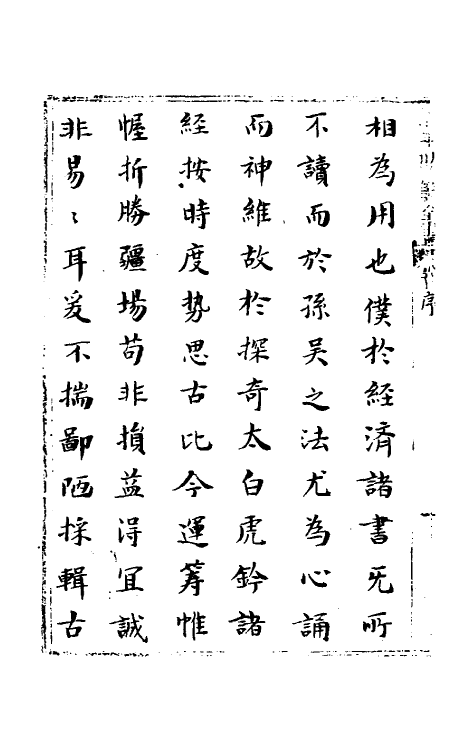 相為用也僕於經濟諸書旡所
不讀而於孫吴之法尤為心誦
而神維故於探奇太白虎鈐諸
經按時度势思古比今運筹惟
幄折勝疆場苟非損益淂冝誠
非易〻耳爰不揣鄙陋採輯古
序